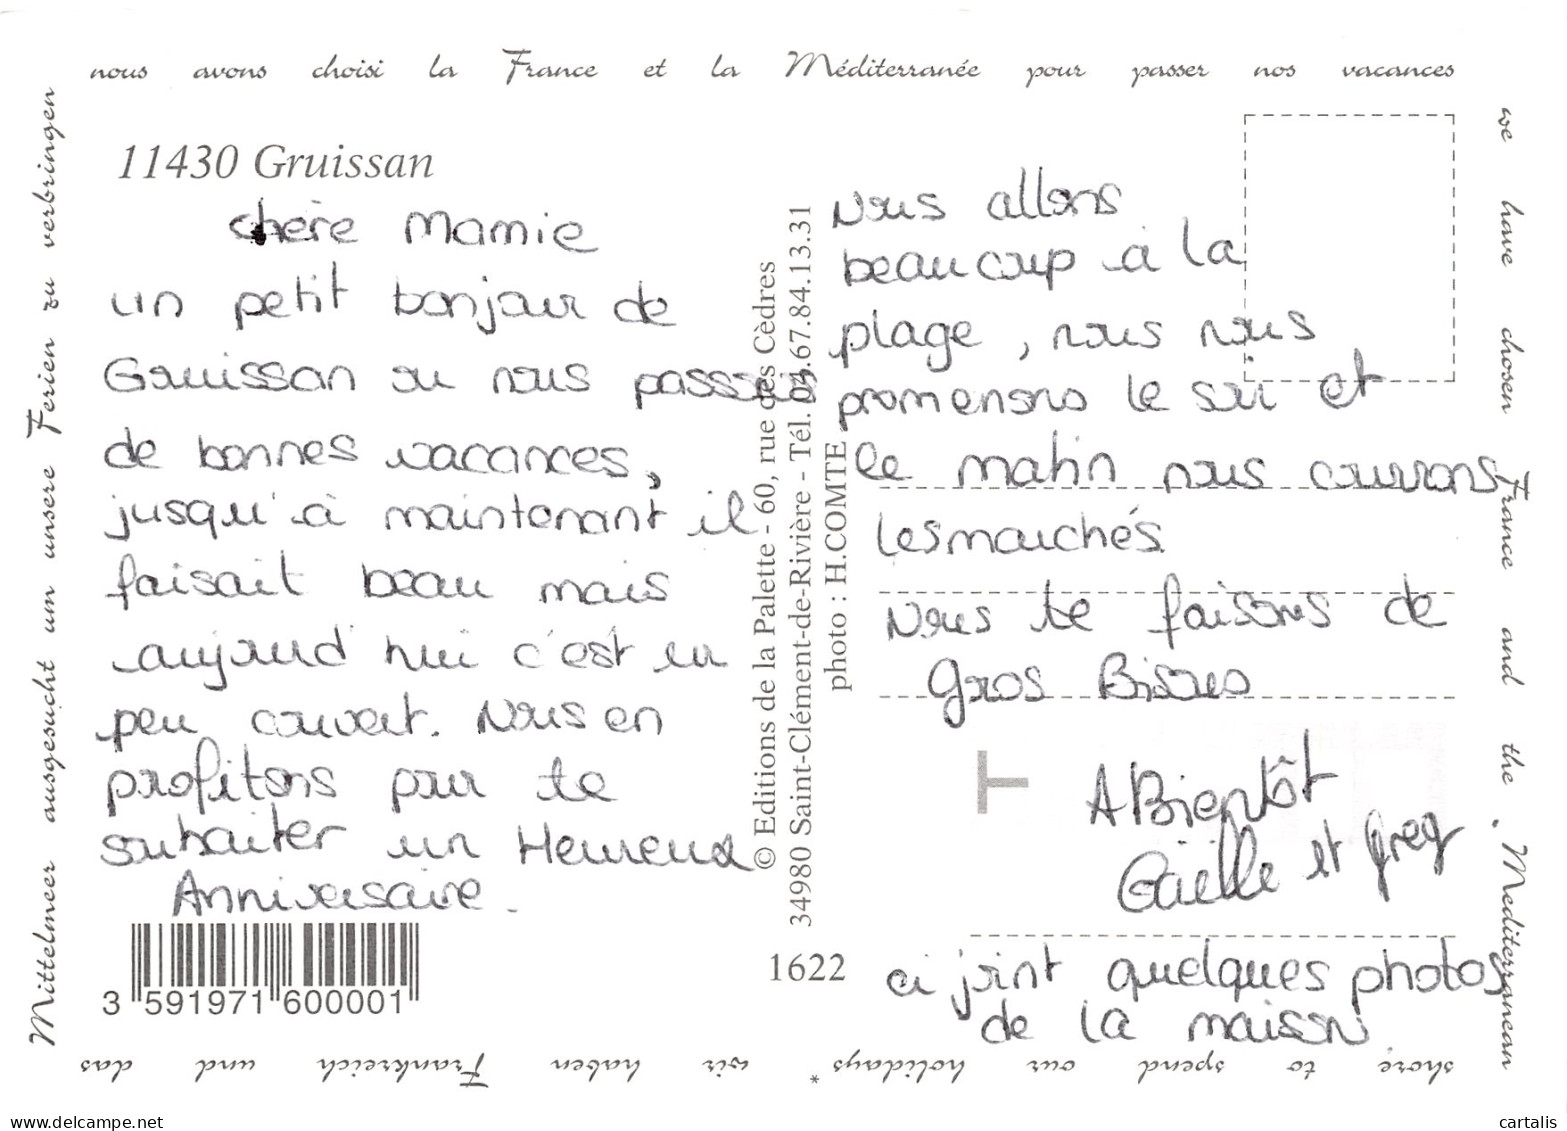 nous avons choisi la France et la Méditerranée pour passer nos vacances
11430 Gruissan
chère Mamie
un petit bonjour de
Gruissan ou nous passons
de bonnes vacances,
jusqu'à maintenant il
faisait beau mais
aujourd'hui c'est un
peu couvert. Nous en
profitons pour te
souhaiter un Heureux
Anniversaire.
3 591971 600001
© Editions de la Palette - 60, rue des Cèdres
34980 Saint-Clément-de-Rivière - Tél. 67.84.13.31
photo : H.COMTE
1622
Nous allons
beaucoup à la
plage, nous nous
promenons le soir et
le matin nous courrons
les marchés
Nous te faisons de
gros Bisous
T
A Bientôt
Gaëlle et Greg
ci joint quelques photos
de la maison
we have chosen France and the Mediterranean
shore to spend our holidays * wir haben Frankreich und das
Mittelmeer ausgesucht um unsere Ferien zu verbringen
www.delcampe.net
cartalis